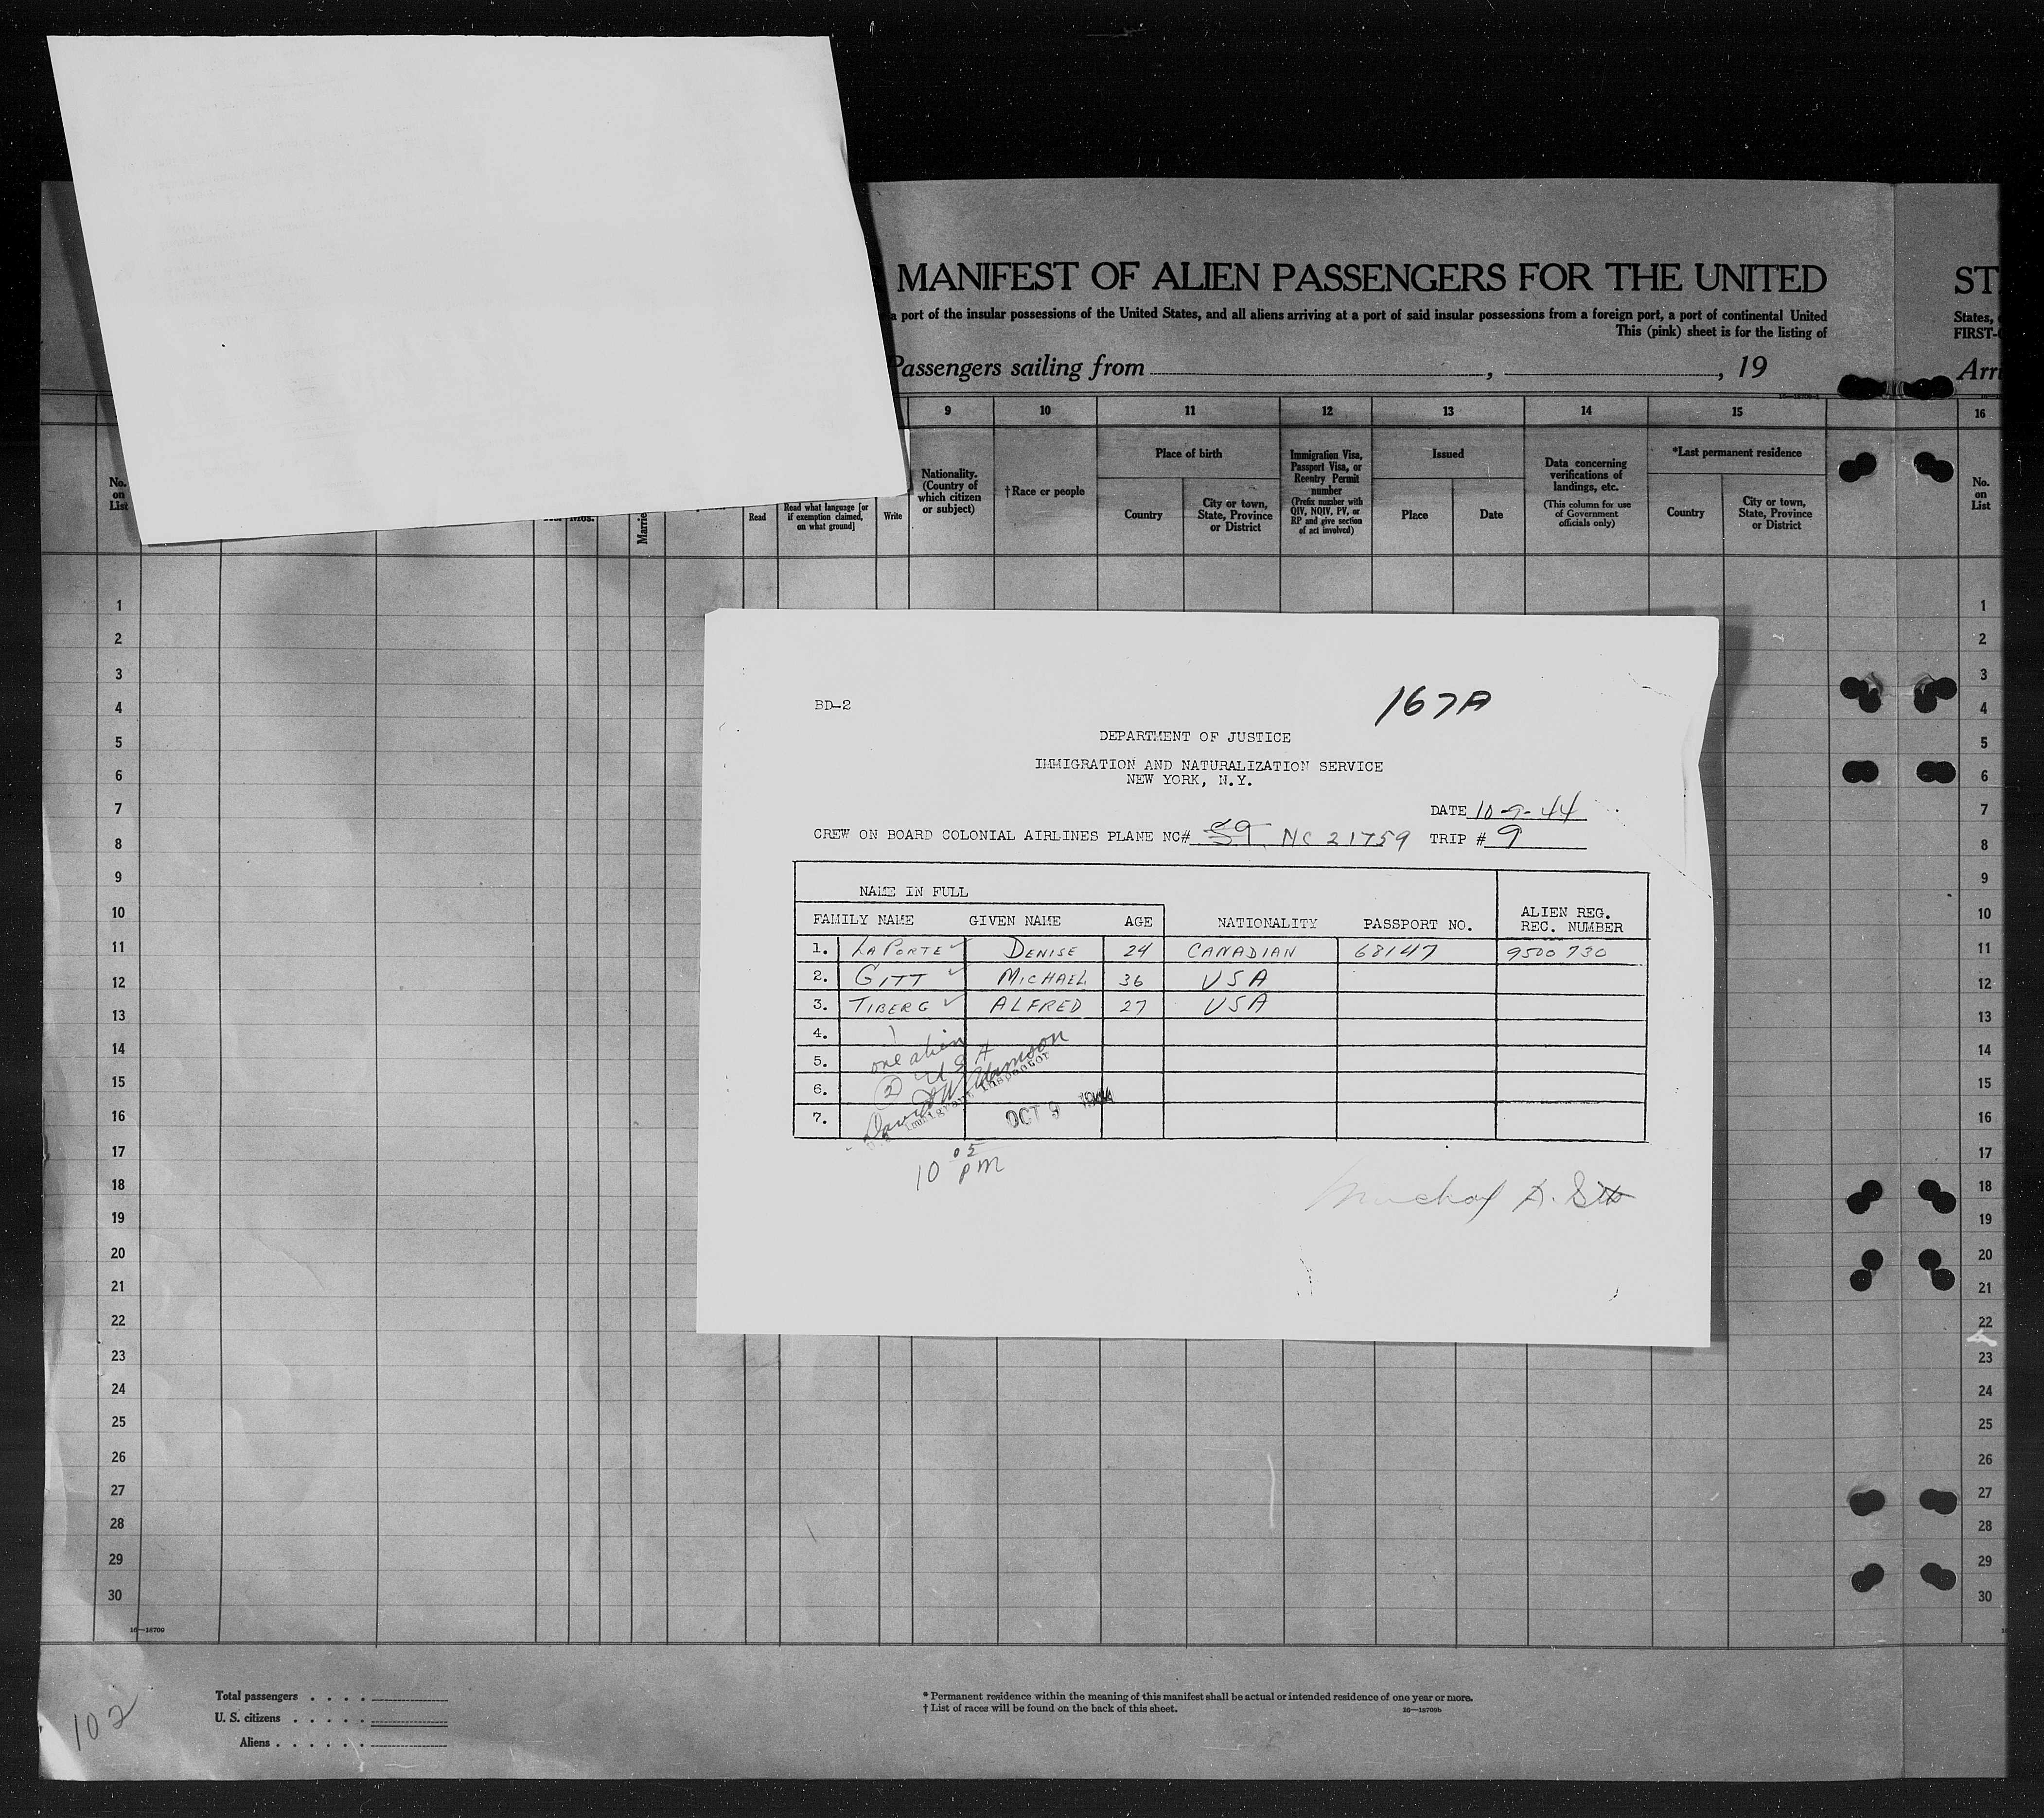 MANIFEST OF ALIEN PASSENGERS FOR THE UNITED ST
a port of the insular possessions of the United States, and all aliens arriving at a port of said insular possessions from a foreign port, a port of continental United States,
This (pink) sheet is for the listing of FIRST-
Passengers sailing from , , 19 Arri
16—18709-1
9 10 11 12 13 14 15 16
No. on List
Read
Read what language [or if exemption claimed, on what ground]
Write
Nationality. (Country of which citizen or subject)
†Race or people
Place of birth
Country
City or town, State, Province or District
Immigration Visa, Passport Visa, or Reentry Permit number
(Prefix number with QIV, NQIV, PV, or RP and give section of act involved)
Issued
Place
Date
Data concerning verifications of landings, etc.
(This column for use of Government officials only)
*Last permanent residence
Country
City or town, State, Province or District
No. on List
1 1
2 2
3 3
4 4
5 5
6 6
7 7
8 8
9 9
10 10
11 11
12 12
13 13
14 14
15 15
16 16
17 17
18 18
19 19
20 20
21 21
22 22
23 23
24 24
25 25
26 26
27 27
28 28
29 29
30 30
BD-2
167A
DEPARTMENT OF JUSTICE
IMMIGRATION AND NATURALIZATION SERVICE
NEW YORK, N.Y.
DATE 10-9-44
CREW ON BOARD COLONIAL AIRLINES PLANE NC# 59 NC 21759 TRIP # 9
NAME IN FULL
FAMILY NAME GIVEN NAME AGE NATIONALITY PASSPORT NO. ALIEN REG. REC. NUMBER
1. LAPORTE DENISE 24 CANADIAN 68147 9500730
2. GITT MICHAEL 36 USA
3. TIBERG ALFRED 27 USA
4.
5.
6.
7.
one alien
2 USA
David W Adamson
Immigrant Inspector
OCT 9 1944
10 05 PM
Michael A. Gitt
16—18709
102
Total passengers . . . .
U. S. citizens . . . . .
Aliens . . . . . .
* Permanent residence within the meaning of this manifest shall be actual or intended residence of one year or more.
† List of races will be found on the back of this sheet.
16—18709b